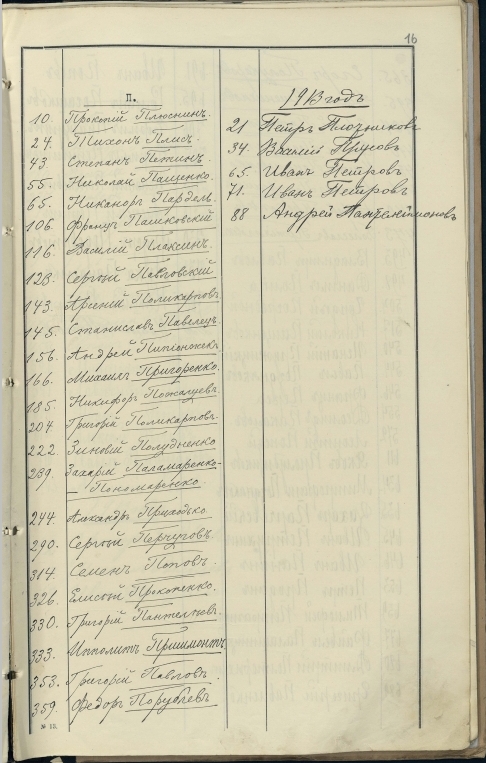 16
П.
10. Прокопій Плюснинъ.
24. Тихонъ Плисъ.
43 Степанъ Пенинъ.
55. Николай Пащенко.
65. Никаноръ Пардель.
106. Францъ Пашковскій
116. Василій Плаксинъ.
128. Сергѣй Павловскій
143. Арсеній Поликарповъ
145. Станиславъ Павелецъ
156. Андрей
166. Михаилъ Пригоренко.
185. Никифоръ Пожалуевъ.
204 Григорій Поликарповъ.
222. Зиновій Полудненко
239. Захарій Паламаренко-
Пономаренко
244. Александръ Приходько
290. Сергѣй Перчуговъ
314. Семенъ Поповъ
326. Елисѣй Прокопенко.
330. Григорій Пантелѣевъ
333. Ипполитъ
353. Григорій Павловъ.
359. Федоръ Порублевъ
№ 10.
1913 годъ
21 Петръ Плотниковъ
34. Василій Прусовъ
65. Иванъ Петровъ
71. Иванъ Петровъ
88 Андрей Пантелеймоновъ